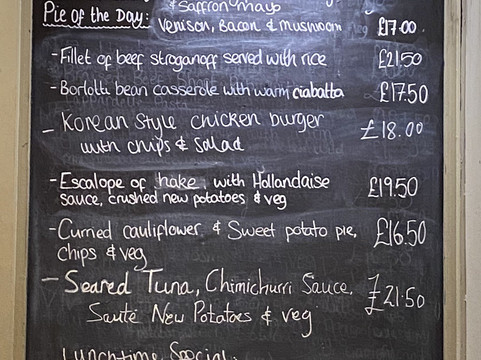 & Saffron mayo
Pie of the Day: Venison, Bacon & Mushroom £17.00
- Fillet of beef stroganoff served with rice £21.50
- Borlotti bean casserole with warm ciabatta £17.50
- Korean Style chicken burger £18.00
with chips & Salad
- Escalope of hake, with Hollandaise £19.50
sauce, crushed new potatoes & veg
- Curried cauliflower & Sweet potato pie, £16.50
chips & veg
- Seared Tuna, Chimichurri Sauce, £21.50
Sauté New Potatoes & veg
Lunchtime Special: